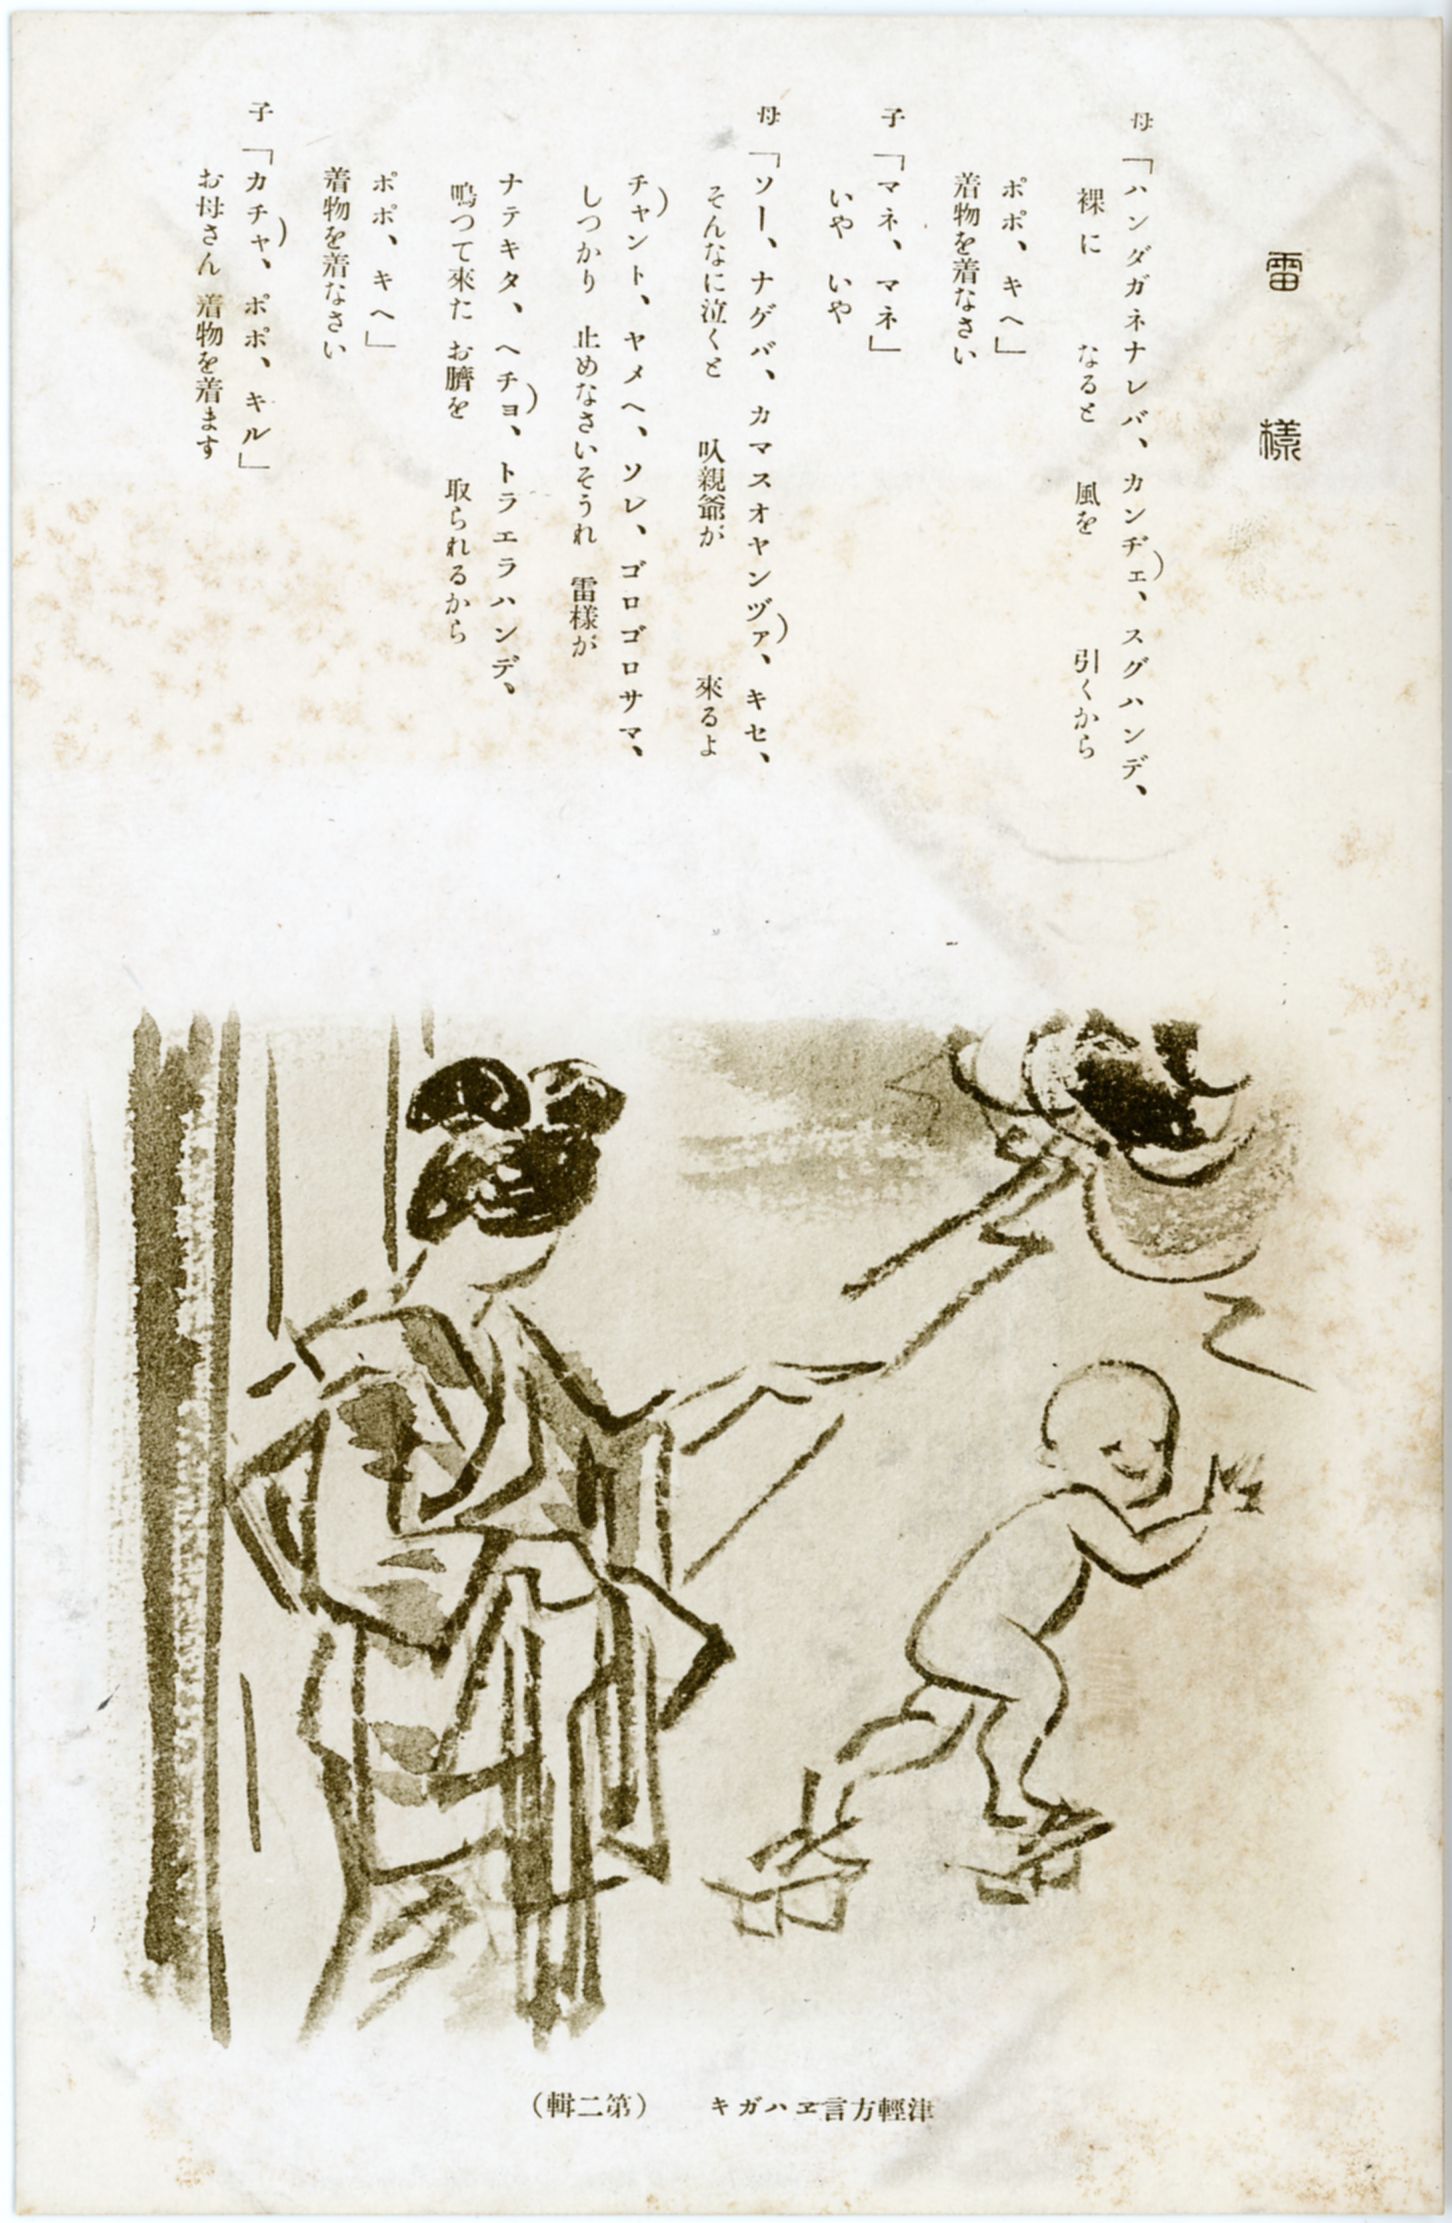 雷様
母「ハンダガネナレバ、カンヂェ、スグハンデ、
裸に なると 風を 引くから
ポポ、キヘ」
着物を着なさい
子「マネ、マネ」
いや いや
母「ソー、ナゲバ、カマスオヤンヅァ、キセ、
そんなに泣くと 叺親爺が 來るよ
チャント、ヤメヘ、ソレ、ゴロゴロサマ、
しつかり 止めなさいそうれ 雷様が
ナテキタ、ヘチョ、トラエラハンデ、
鳴つて來た お臍を 取られるから
ポポ、キヘ」
着物を着なさい
子「カチャ、ポポ、キル」
お母さん 着物を着ます
津輕方言ヱハガキ (第二輯)